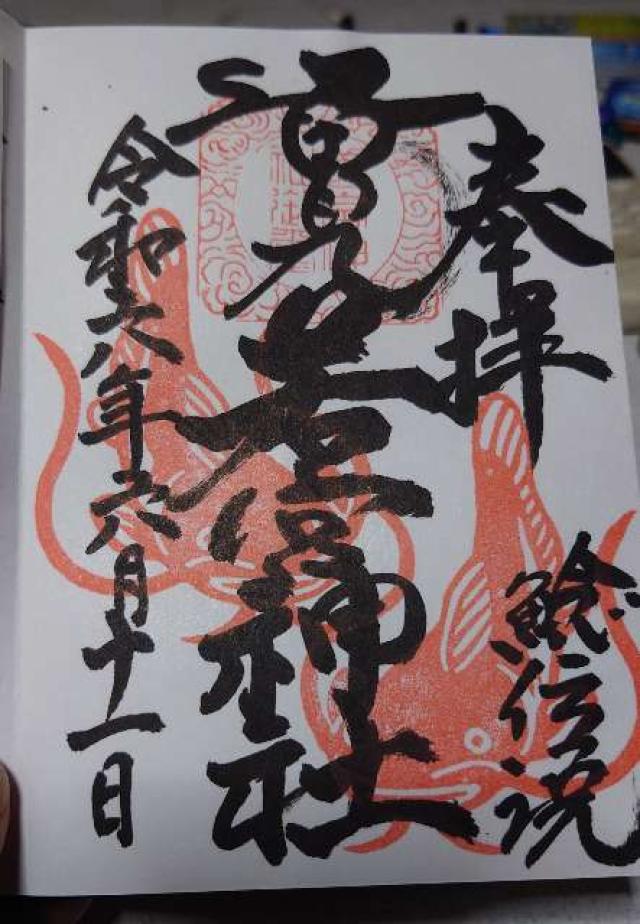 奉拝
鯰伝説
若宮神社
令和六年六月十一日